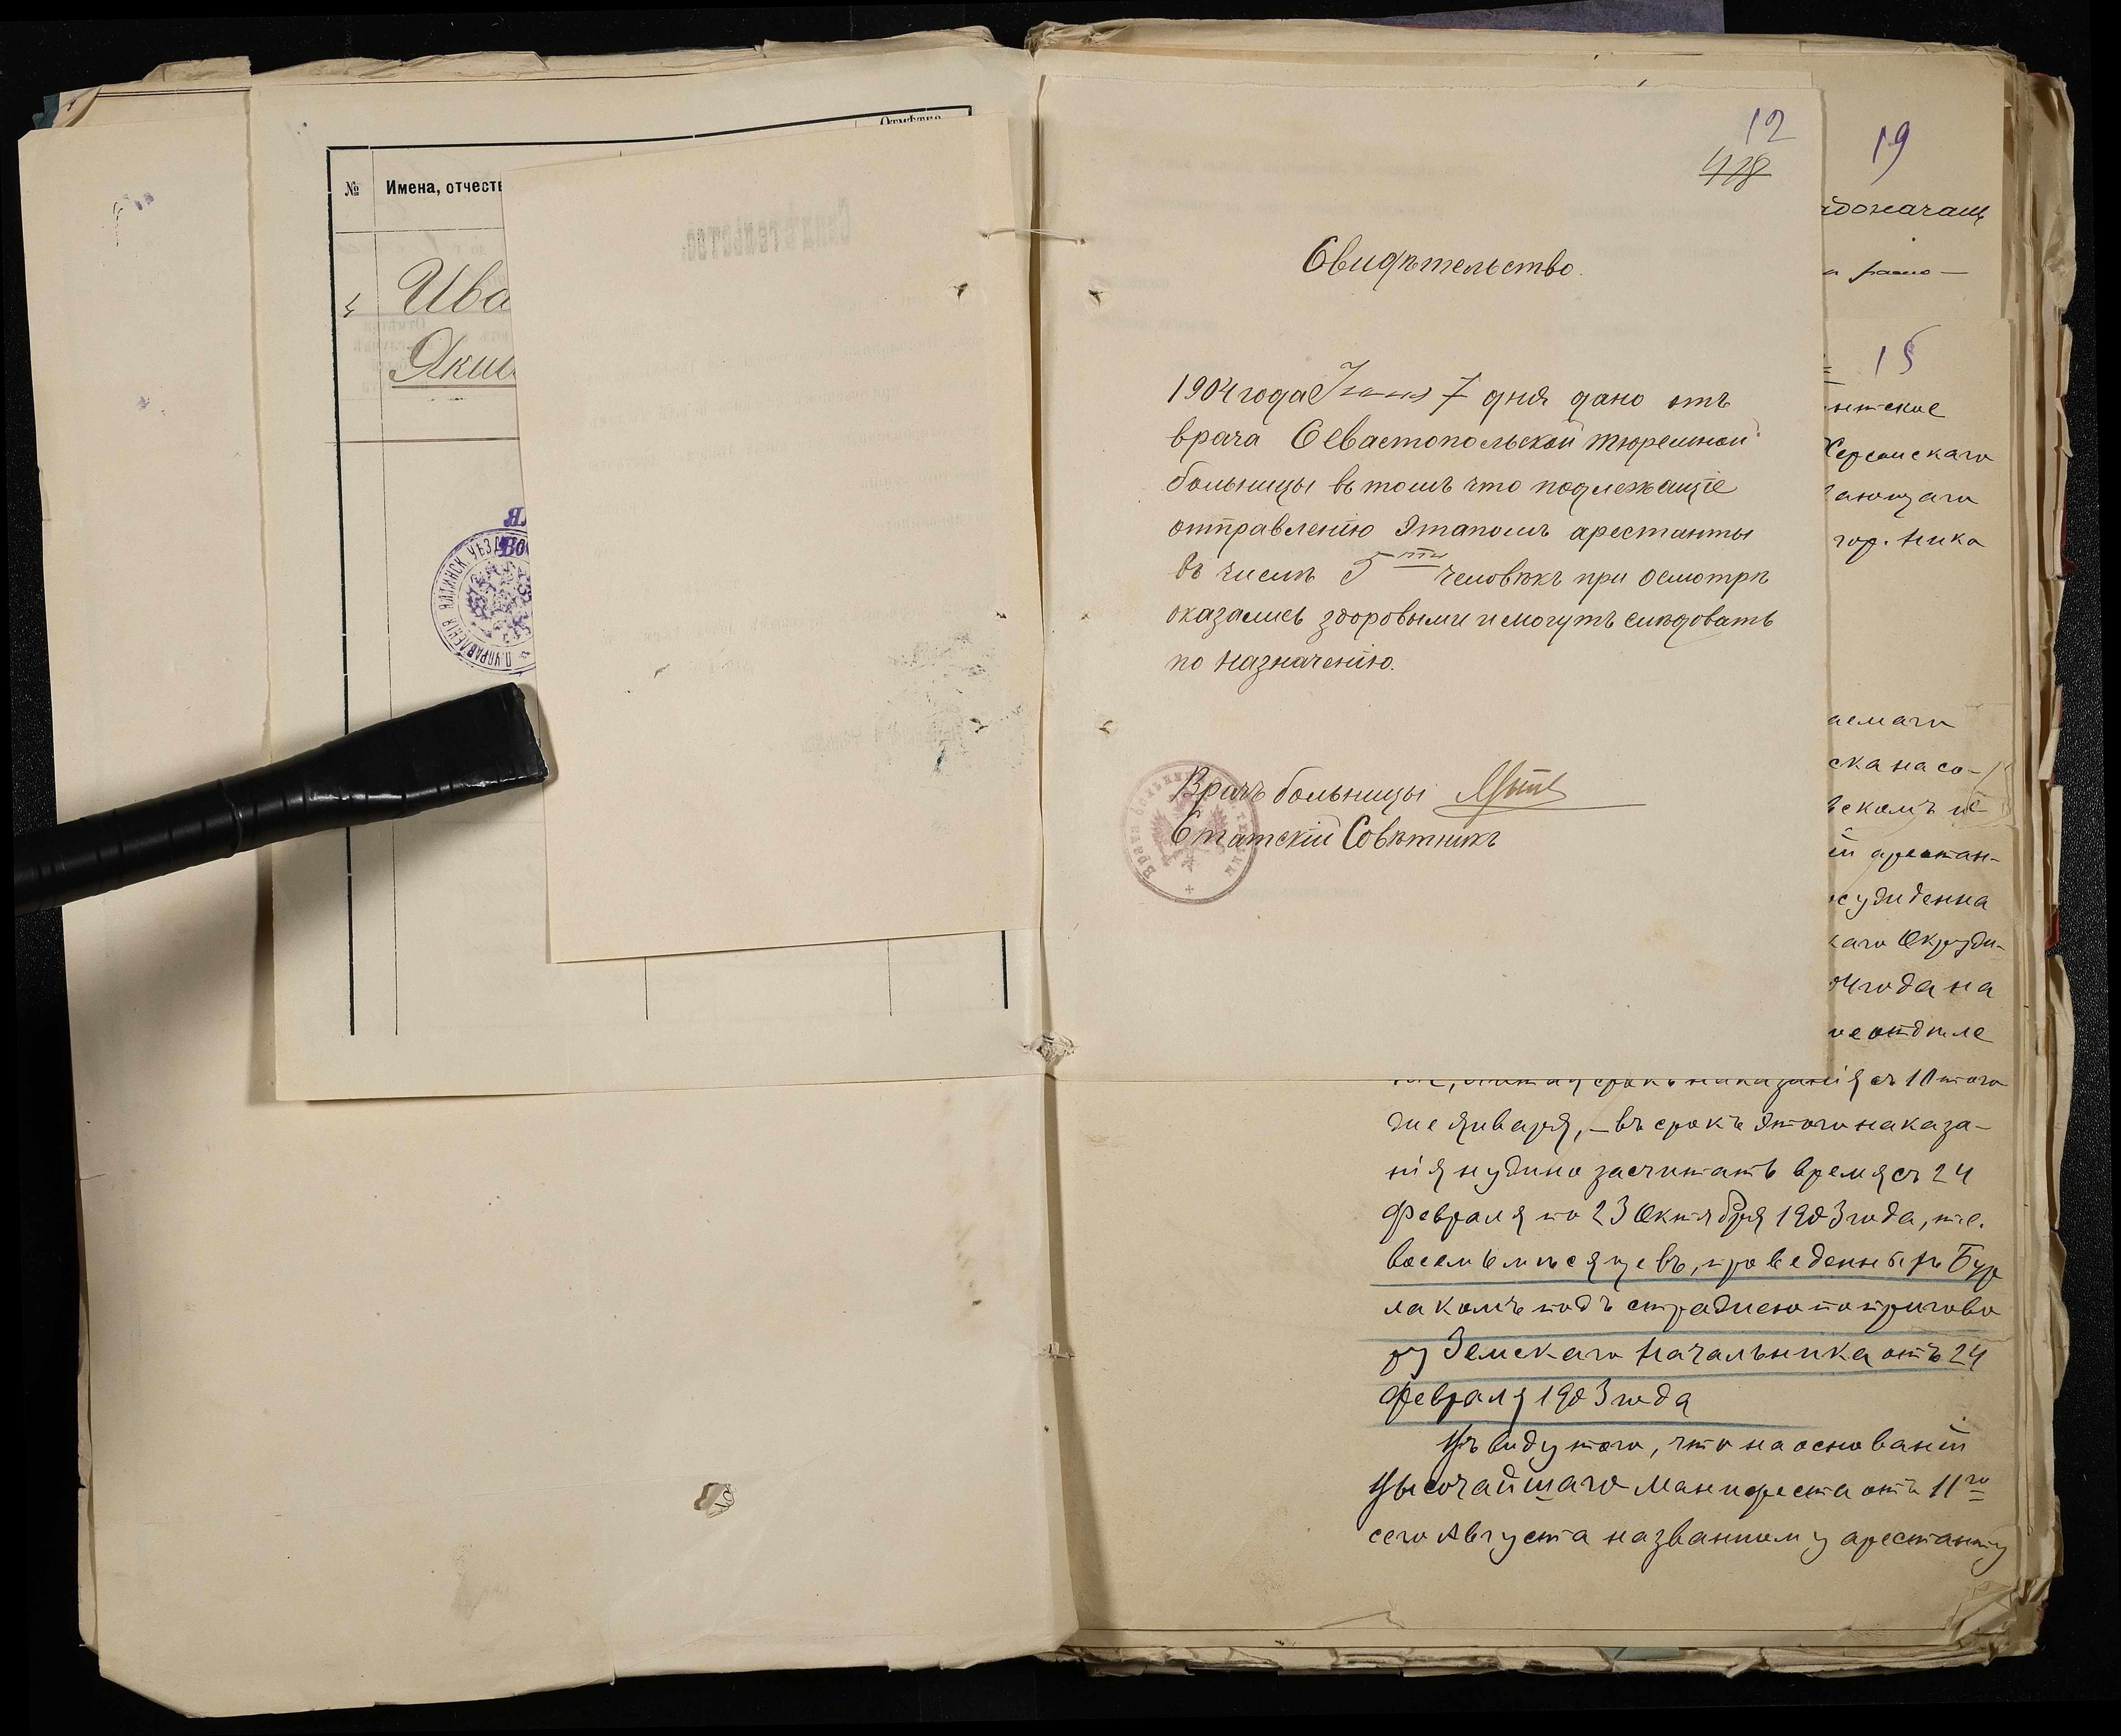 №
Имена, отчеств
Отмѣтка
Ива
Яким
12
418
Свидѣтельство.
1904 года Іюня 7 дня дано отъ
врача Севастопольской тюремной
больницы въ томъ что подлежащіе
отправленію этапомъ арестанты
въ числѣ 5ти человѣкъ при осмотрѣ
оказались здоровыми и могутъ слѣдовать
по назначенію.
Врачъ больницы
Статскій Совѣтникъ
19
15
Херсонскаго
гор. Ника
аемаго
ска на со-
арестан-
каго Окруж-
года на
срокъ наказанія съ 10 того
же Января, — въ срокъ этого наказа-
нія нужно засчитать время съ 24
Февраля по 23 Октября 1903 года, т.е.
восемь мѣсяцевъ, проведенныхъ Бур
лакомъ подъ стражею по пригово
ру Земскаго Начальника отъ 24
Февраля 1903 года
Въ виду того, что на основаніи
Высочайшаго манифеста отъ 11го
сего Августа названному арестанту